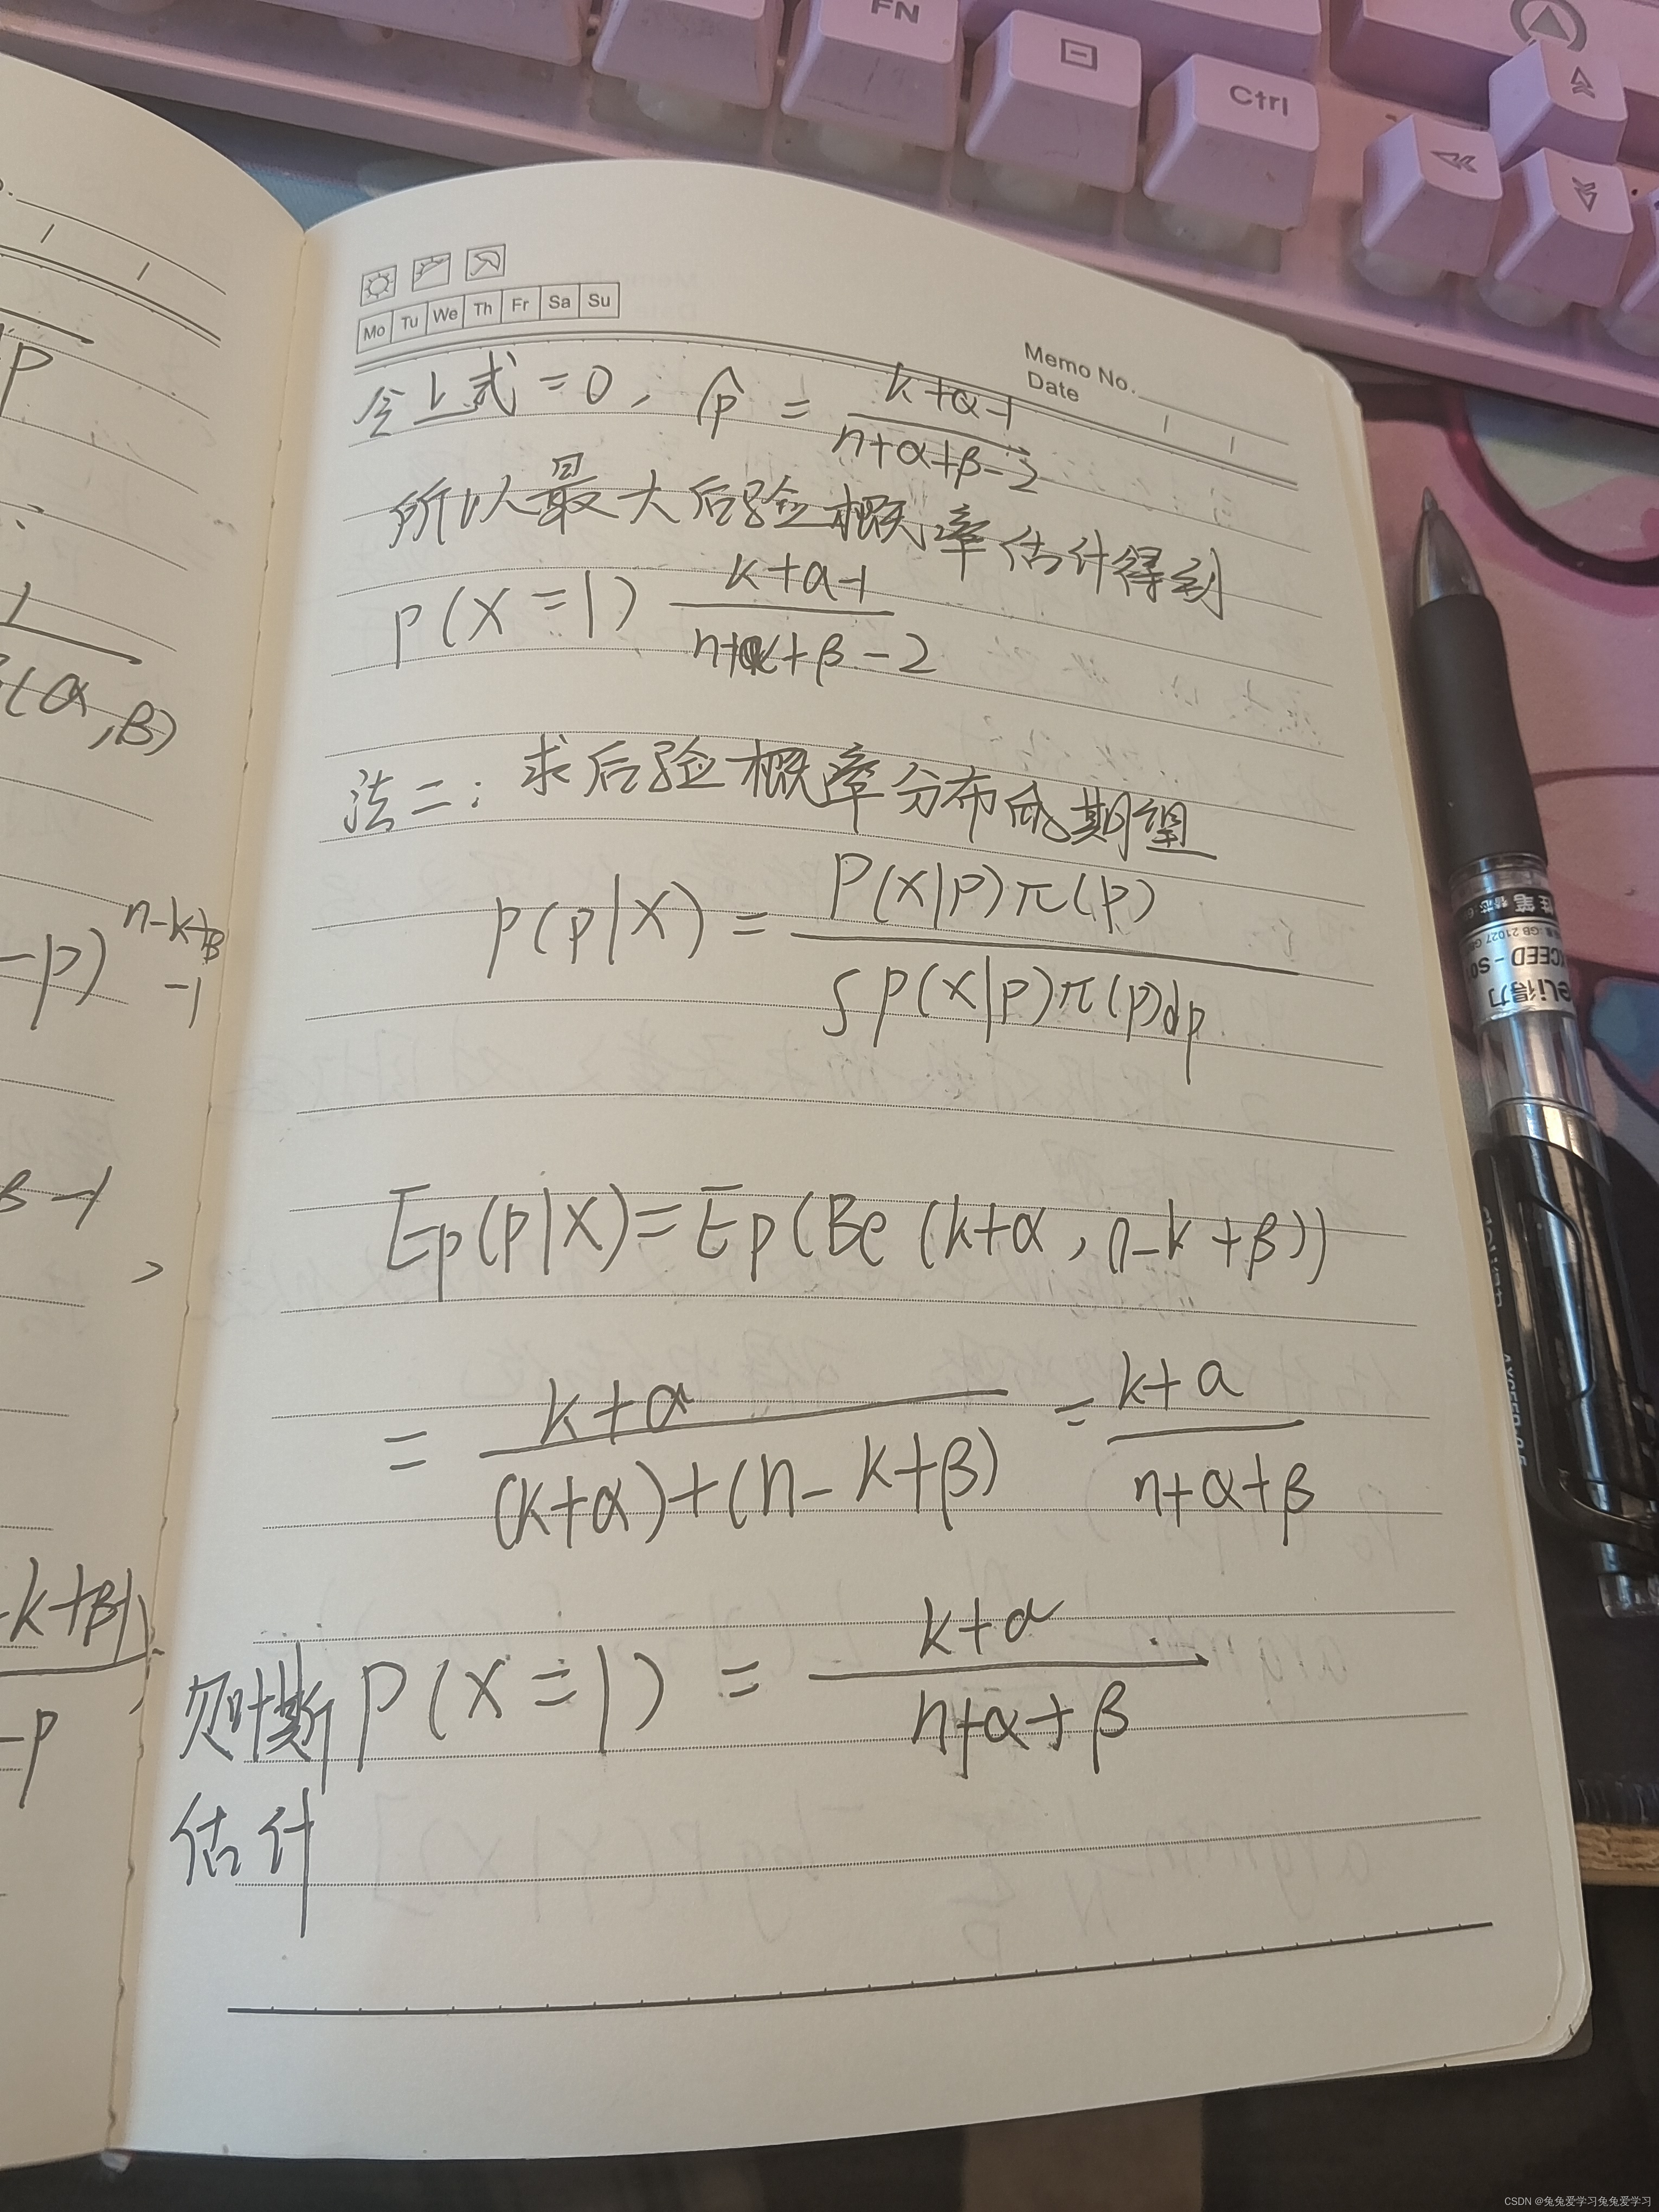 FN
Ctrl
Mo Tu We Th Fr Sa Su
Memo No.
Date
令上式 = 0, p̂ = (k+α-1)/(n+α+β-2)
所以最大后验概率估计得到
P(X=1) (k+α-1)/(n+α+β-2)
法二: 求后验概率分布的期望
p(p|X) = P(X|p)π(p) / ∫p(X|p)π(p)dp
Ep(p|X) = Ep(Be(k+α, n-k+β))
= (k+α)/((k+α)+(n-k+β)) = (k+α)/(n+α+β)
贝叶斯 P(X=1) = (k+α)/(n+α+β)
估计
p
(α,β)
-p)^{n-k+β-1}
β-1
-k+β-1)
-p
得力
CSDN @兔兔爱学习兔兔爱学习